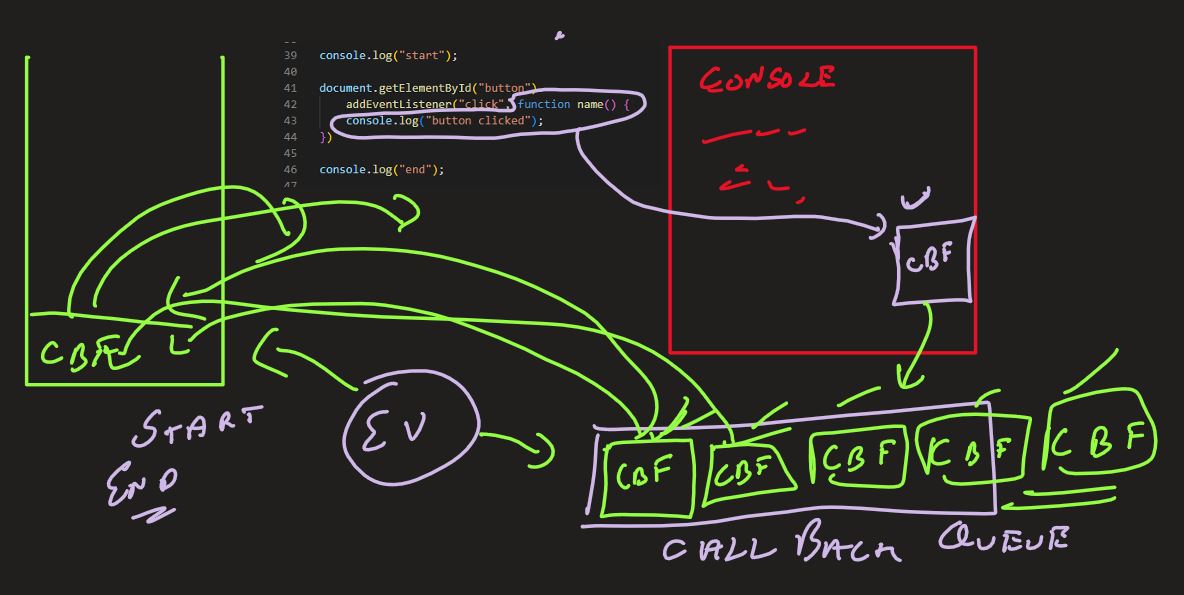 39 console.log("start");
40
41 document.getElementById("button")
42 addEventListener("click", function name() {
43 console.log("button clicked");
44 })
45
46 console.log("end");
47
CONSOLE
CBF
CBF
START
END
EV
CBF
CBF
CBF
CBF
CBF
CALL BACK QUEUE